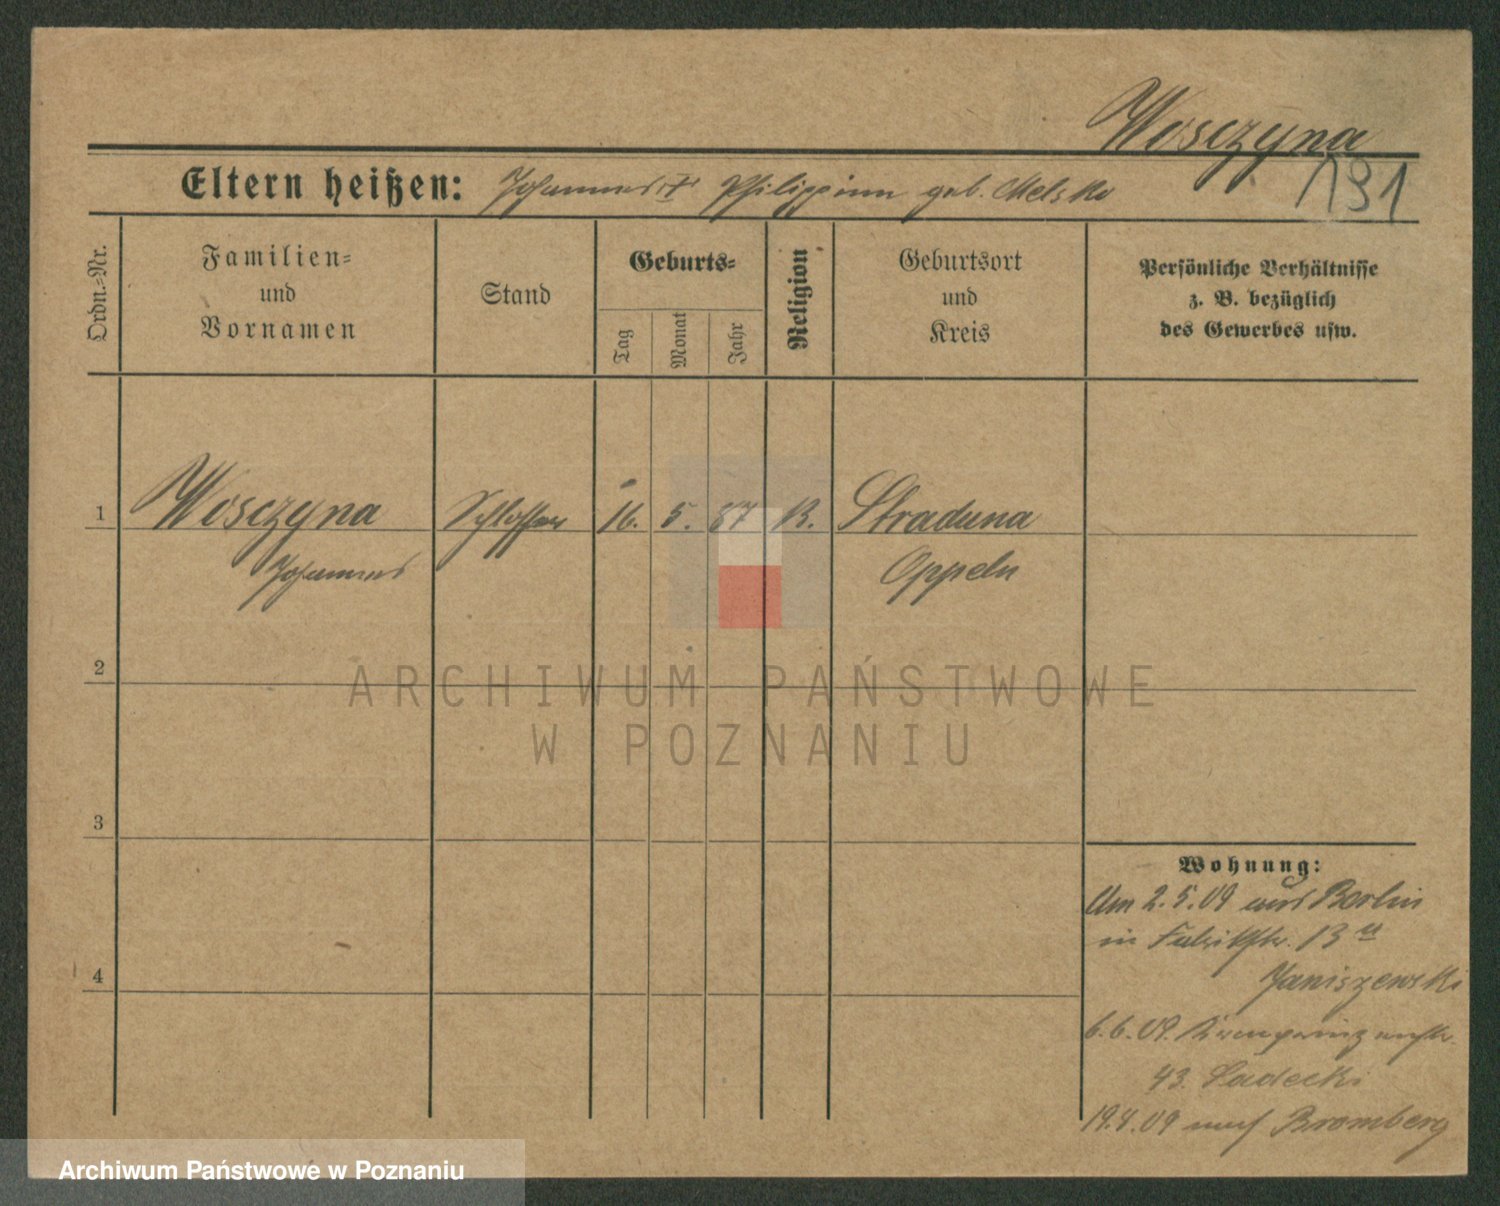 Wosczyna
Eltern heißen: Johannes † Philippine geb. Melska
131
Ordn.-Nr.
Familien-
und
Vornamen
Stand
Geburts-
Tag
Monat
Jahr
Religion
Geburtsort
und
Kreis
Persönliche Verhältnisse
z. B. bezüglich
des Gewerbes usw.
1 Wosczyna Schlosser 16. 5. 87 Straduna
Johannes Oppeln
2
ARCHIWUM PAŃSTWOWE
W POZNANIU
3
4
Wohnung:
Am 2.5.09 aus Berlin
in Fabrikstr. 13
Janiszewski
6.6.09. Kronprinzenstr.
43. Sadecki
09 nach Bromberg
Archiwum Państwowe w Poznaniu